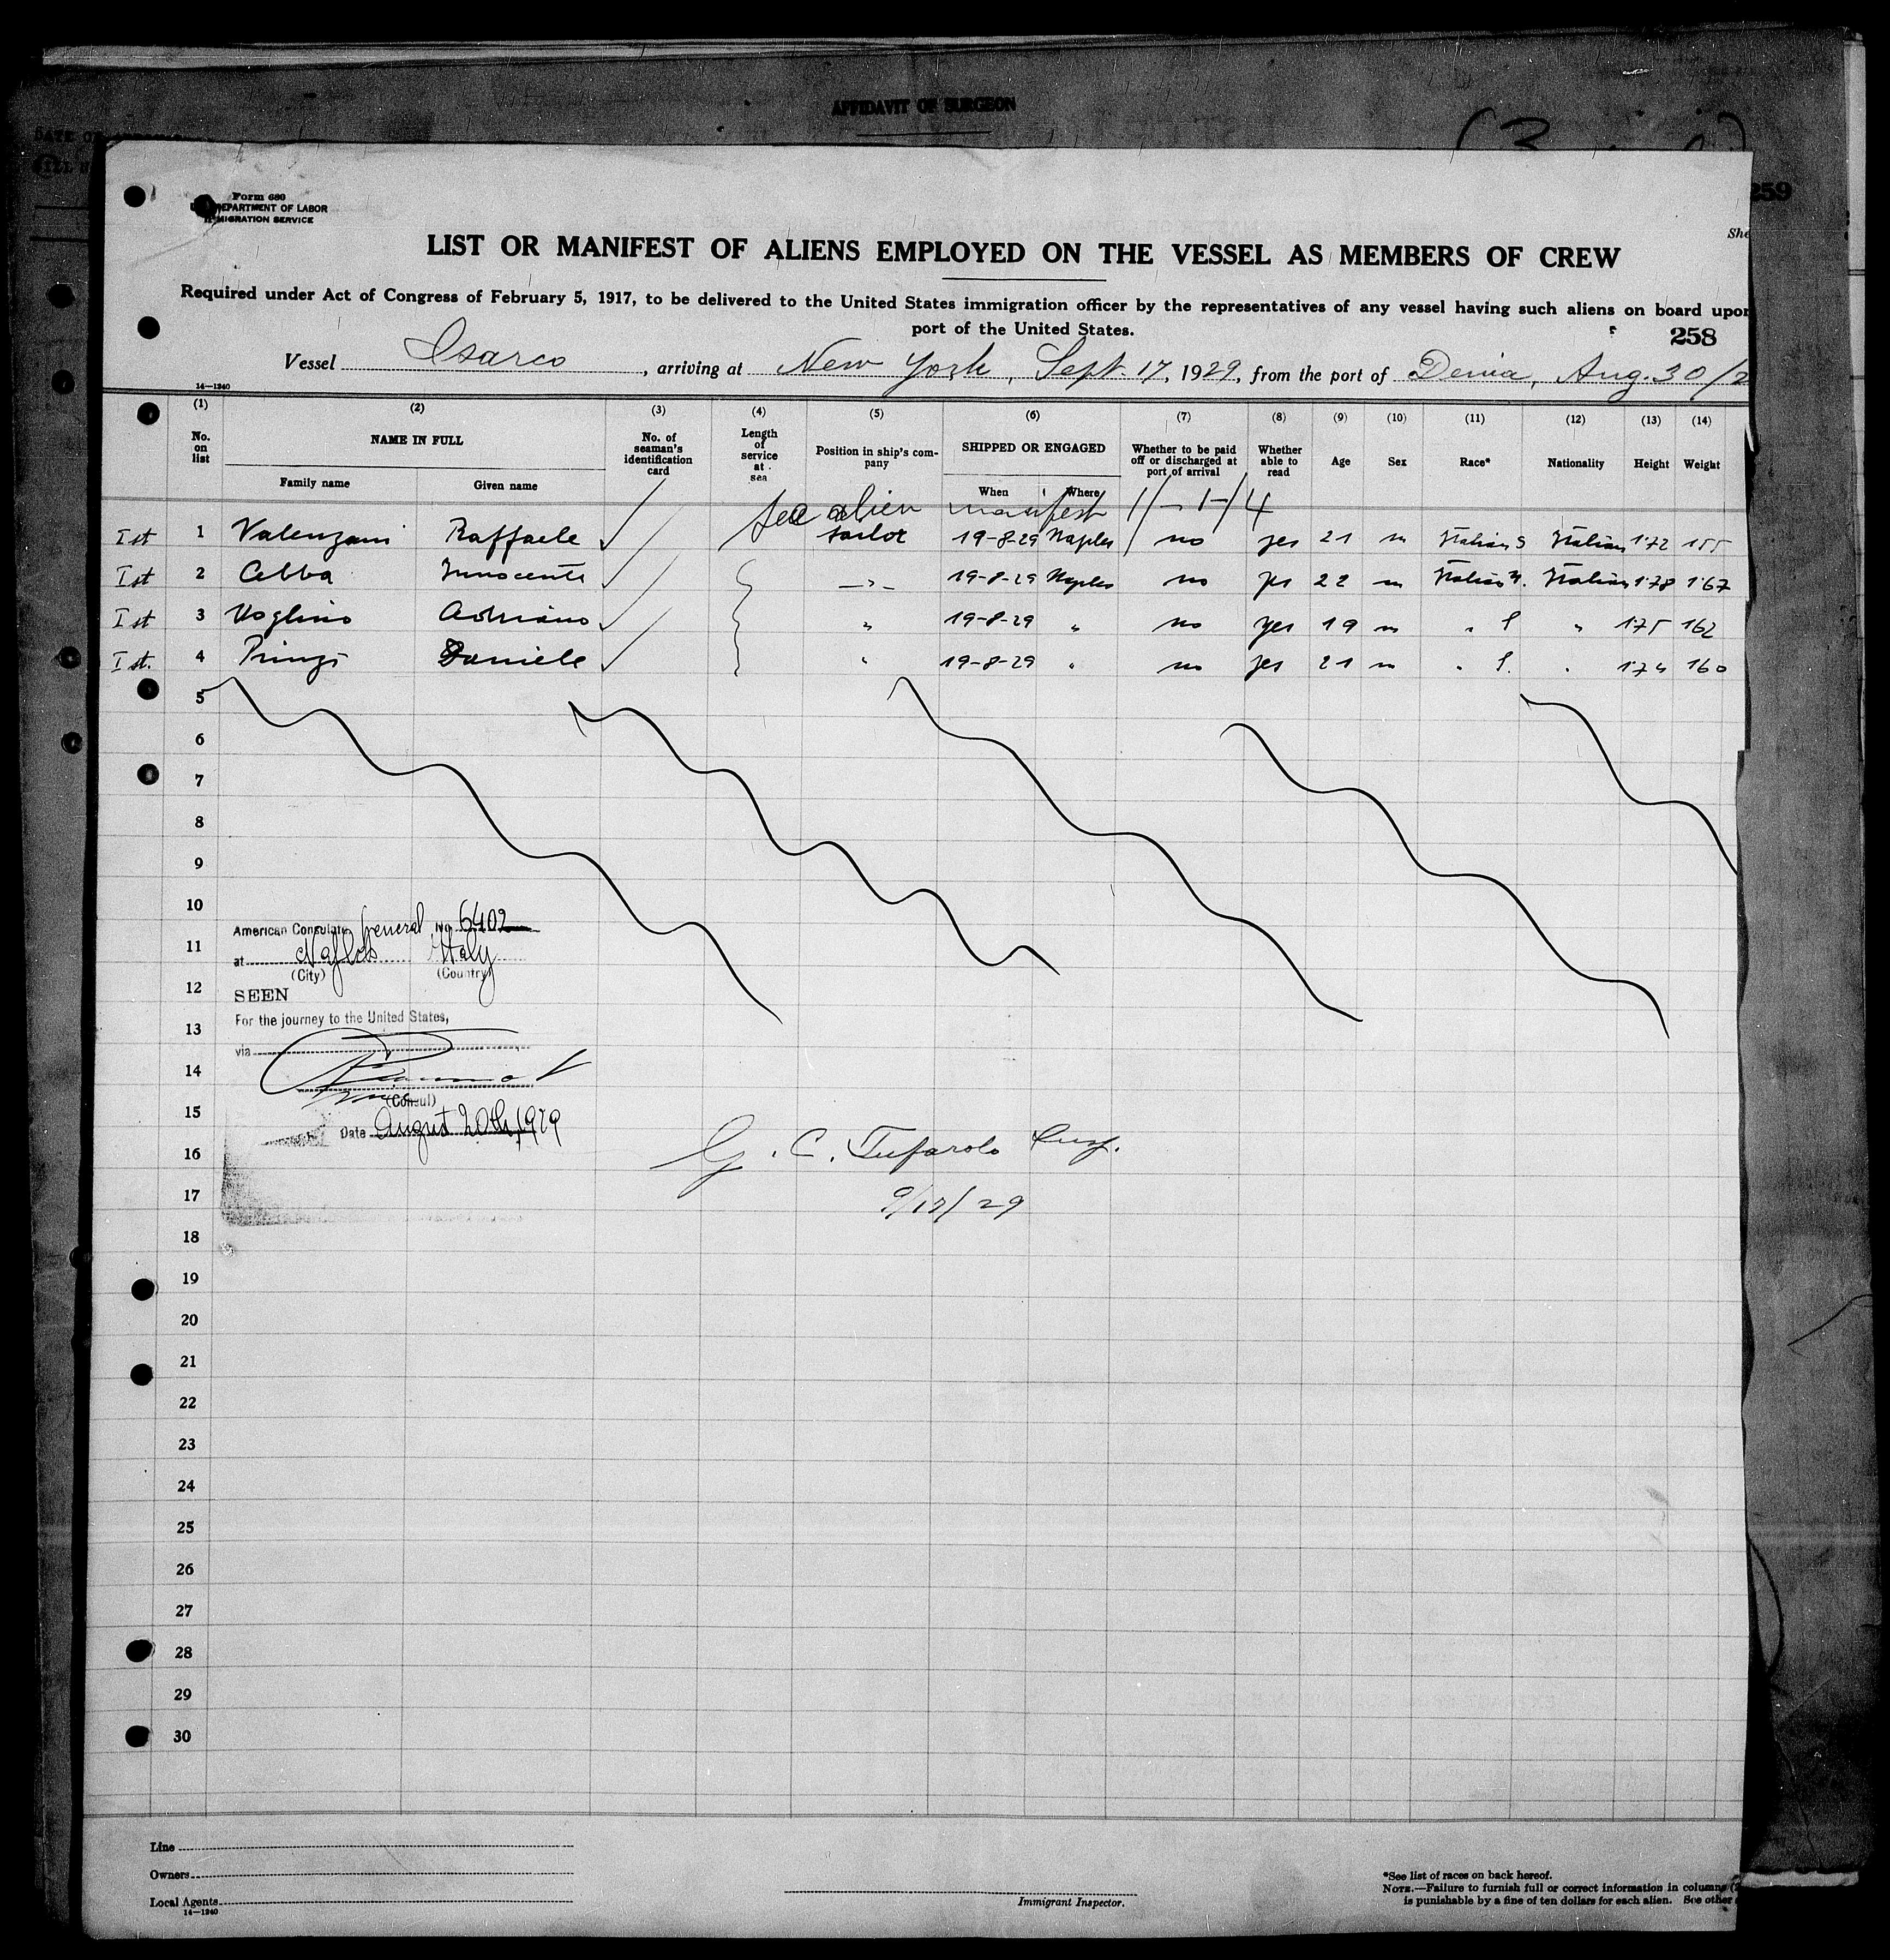 AFFIDAVIT OF SURGEON
259
Form 680
DEPARTMENT OF LABOR
IMMIGRATION SERVICE
She
LIST OR MANIFEST OF ALIENS EMPLOYED ON THE VESSEL AS MEMBERS OF CREW
Required under Act of Congress of February 5, 1917, to be delivered to the United States immigration officer by the representatives of any vessel having such aliens on board upon
port of the United States.
258
Vessel Isarco, arriving at New York, Sept. 17, 1929, from the port of Denia, Aug. 30/2
14—1240
(1) (2) (3) (4) (5) (6) (7) (8) (9) (10) (11) (12) (13) (14)
No. on list NAME IN FULL No. of seaman's identification card Length of service at sea Position in ship's company SHIPPED OR ENGAGED Whether to be paid off or discharged at port of arrival Whether able to read Age Sex Race* Nationality Height Weight
Family name Given name When Where
See alien manifest 1/-1-/4
Ist 1 Valenzani Raffaele sailor 19-8-29 Naples no yes 21 m Italian S Italian 172 155
Ist 2 Abba Innocente 19-8-29 Naples no yes 22 m Italian Italian 178 167
Ist 3 Voglino Adriano " 19-8-29 " no yes 19 m " S " 175 162
Ist. 4 Daniele " 19-8-29 " no yes 21 m " S. " 174 160
5
6
7
8
9
10
American Consulate General, No. 6402
11
at Naples Italy
(City) (Country)
12
SEEN
For the journey to the United States,
13
via
14
(Consul)
15
Date August 20th, 1929
16
G. C. Tufarolo Insp.
17
9/17/29
18
19
20
21
22
23
24
25
26
27
28
29
30
Line
Owners
Local Agents
14—1240
Immigrant Inspector.
*See list of races on back hereof.
NOTE.—Failure to furnish full or correct information in columns
is punishable by a fine of ten dollars for each alien. See other